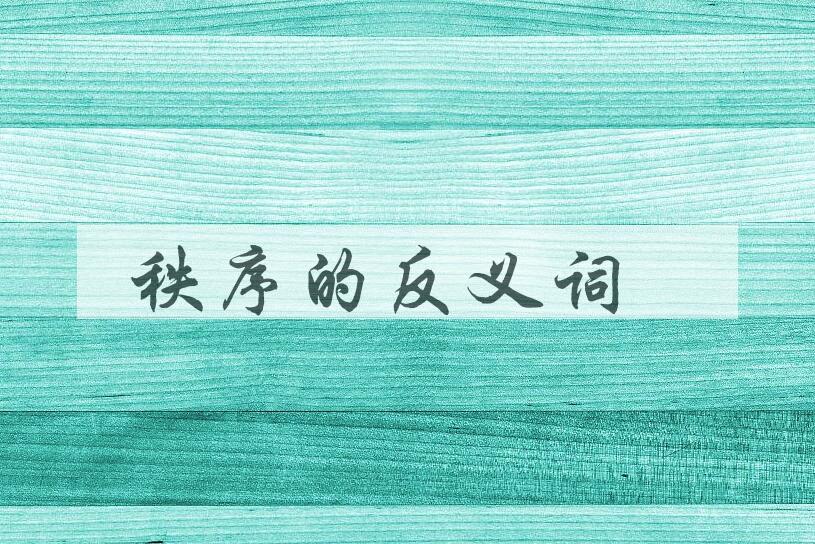 秩序的反义词